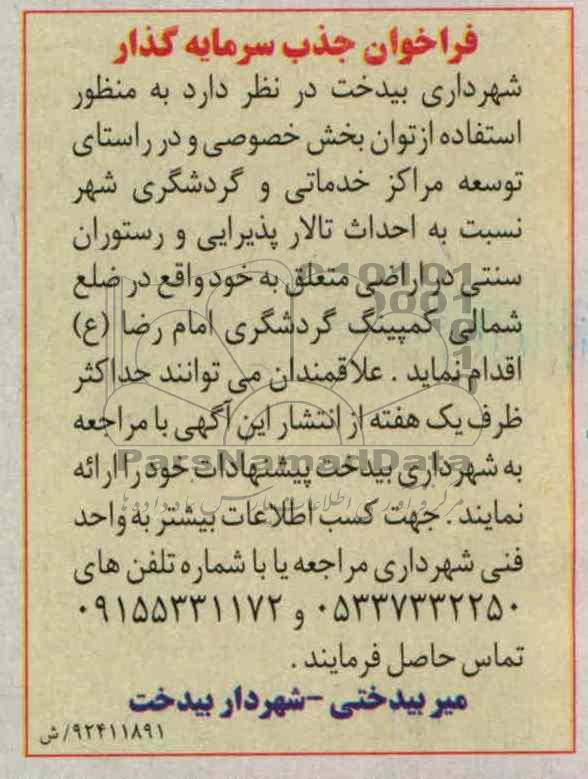 فراخوان جذب سرمایه گذار
شهرداری بیدخت در نظر دارد به منظور
استفاده ازتوان بخش خصوصی و در راستای
توسعه مراکز خدماتی و گردشگری شهر
نسبت به احداث تالار پذیرایی و رستوران
سنتی دراراضی متعلق به خود واقع در ضلع
شمالی کمپینگ گردشگری امام رضا (ع)
اقدام نماید . علاقمندان می توانند حداکثر
ظرف یک هفته از انتشار این آگهی با مراجعه
به شهرداری بیدخت پیشنهادات خود را ارائه
ParsNamadData
نمایند . جهت کسب اطلاعات بیشتر به واحد
فنی شهرداری مراجعه یا با شماره تلفن های
۰۵۳۳۷۳۳۲۲۵۰ و ۰۹۱۵۵۳۳۱۱۷۲
تماس حاصل فرمایند .
میر بیدختی -شهردار بیدخت
۹۲۴۱۱۸۹۱/ش